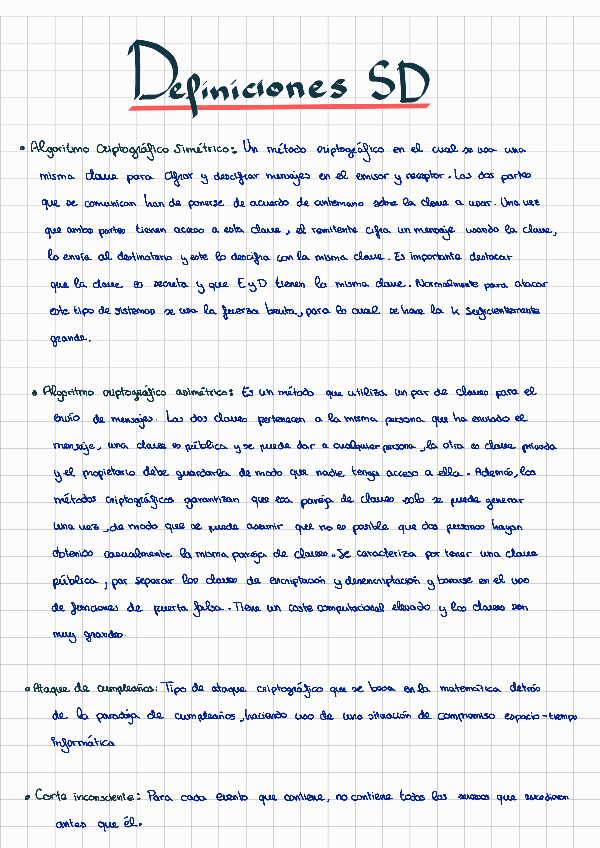 Definiciones SD
• Algoritmo Criptográfico Simétrico: Un método criptográfico en el cual se usa una
misma clave para cifrar y descifrar mensajes en el emisor y receptor. Las dos partes
que se comunican han de ponerse de acuerdo de antemano sobre la clave a usar. Una vez
que ambas partes tienen acceso a esta clave, el remitente cifra un mensaje usando la clave,
lo envía al destinatario y este lo descifra con la misma clave. Es importante destacar
que la clave es secreta y que E y D tienen la misma clave. Normalmente para atacar
este tipo de sistemas se usa la fuerza bruta, para lo cual se hace la K suficientemente
grande.
• Algoritmo criptográfico asimétrico: Es un método que utiliza un par de claves para el
envío de mensajes. Las dos claves pertenecen a la misma persona que ha enviado el
mensaje, una clave es pública y se puede dar a cualquier persona, la otra es clave privada
y el propietario debe guardarla de modo que nadie tenga acceso a ella. Además, los
métodos criptográficos garantizan que esa pareja de claves solo se puede generar
una vez, de modo que se puede asumir que no es posible que dos personas hayan
obtenido casualmente la misma pareja de claves. Se caracteriza por tener una clave
pública, por separar las claves de encriptación y desencriptación y basarse en el uso
de funciones de puerta falsa. Tiene un coste computacional elevado y las claves son
muy grandes.
• Ataque de cumpleaños: Tipo de ataque criptográfico que se basa en la matemática detrás
de la paradoja de cumpleaños, haciendo uso de una situación de compromiso espacio-tiempo
informática
• Corte inconsciente: Para cada evento que contiene, no contiene todos los sucesos que sucedieron
antes que él.